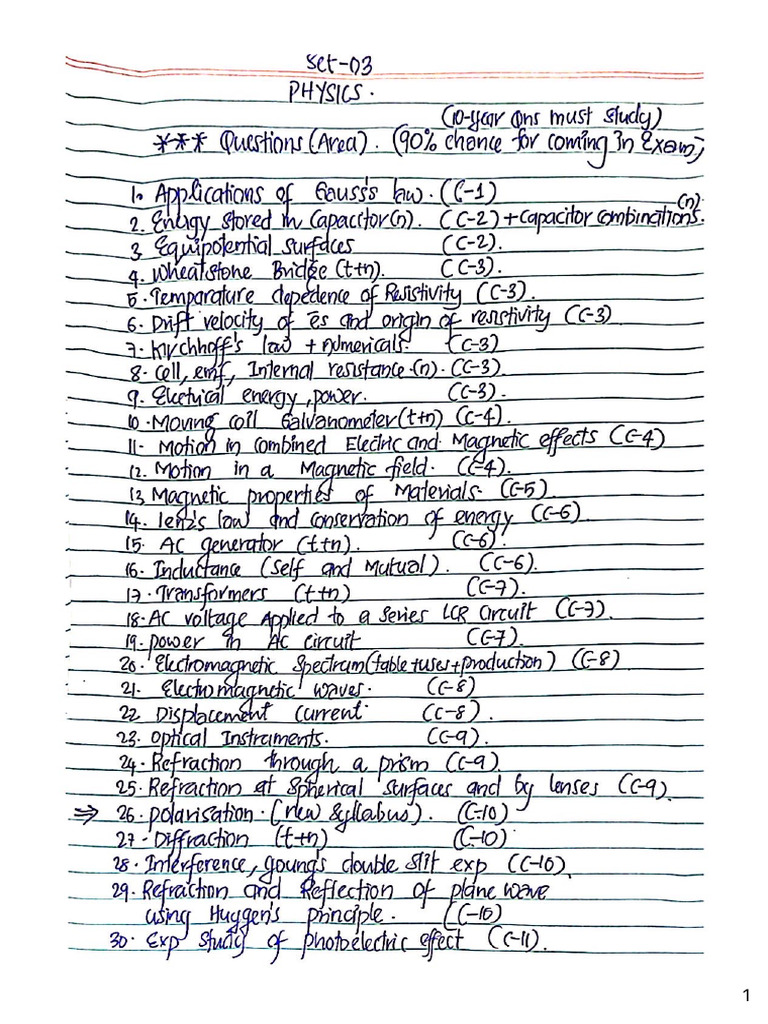 Set-03
PHYSICS.
(10-year Qns must study)
*** Questions (Area). (90% chance for coming in Exam)
1. Applications of Gauss's law. (C-1)
2. Energy stored in Capacitor(n). (C-2) + Capacitor combinations.(n)
3 Equipotential surfaces (C-2).
4. Wheatstone Bridge (t+n). (C-3).
5. Temparature depedence of Resistivity (C-3).
6. Drift velocity of ēs and origin of resistivity (C-3)
7. Kirchhoff's law + numericals. (C-3)
8. Cell, emf, Internal resistance.(n). (C-3).
9. Elctrical energy, power. (C-3).
10. Moving coil Galvanometer (t+n) (C-4).
11. Motion in Combined Electric and Magnetic effects (C-4)
12. Motion in a Magnetic field. (C-4).
13 Magnetic properties of Materials. (C-5)
14. lenz's law and conservation of energy (C-6).
15. AC generator (t+n). (C-6).
16. Inductance (Self and Mutual). (C-6).
17. Transformers (t+n) (C-7).
18. AC voltage Applied to a Series LCR Circuit (C-7).
19. power in AC circuit (C-7).
20. Electromagnetic Spectrum (table +uses+production) (C-8)
21. Electromagnetic waves. (C-8)
22 Displacement Current. (C-8).
23. Optical Instraments. (C-9).
24. Refraction through a prism (C-9).
25. Refraction at Spherical Surfaces and by lenses (C-9).
⇒ 26. polarisation. (new Syllabus). (C-10)
27. Diffraction (t+n) (C-10).
28. Interference, young's double slit exp (C-10).
29. Refraction and Reflection of plane wave
using Huygen's principle. (C-10)
30. Exp study of photoelectric effect (C-11).
1